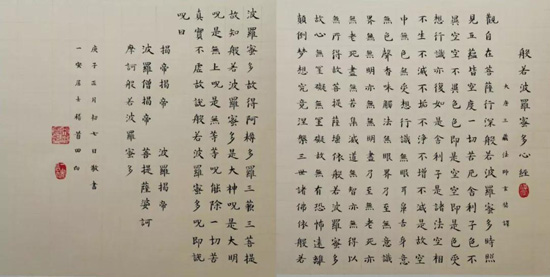 般若波羅蜜多心經
大唐三藏法師玄奘譯
觀自在菩薩行深般若波羅蜜多時照
見五蘊皆空度一切苦厄舍利子色不
異空空不異色色即是空空即是色受
想行識亦復如是舍利子是諸法空相
不生不滅不垢不淨不增不減是故空
中無色無受想行識無眼耳鼻舌身意
無色聲香味觸法無眼界乃至無意識
界無無明亦無無明盡乃至無老死亦
無老死盡無苦集滅道無智亦無得以
無所得故菩提薩埵依般若波羅蜜多
故心無罣礙無罣礙故無有恐怖遠離
顛倒夢想究竟涅槃三世諸佛依般若
波羅蜜多故得阿耨多羅三藐三菩提
故知般若波羅蜜多是大神呪是大明
呪是無上呪是無等等呪能除一切苦
真實不虛故說般若波羅蜜多呪即說
呪曰
揭帝揭帝 波羅揭帝
波羅僧揭帝 菩提薩婆訶
摩訶般若波羅蜜多
庚子正月初七日敬書
居士楊首